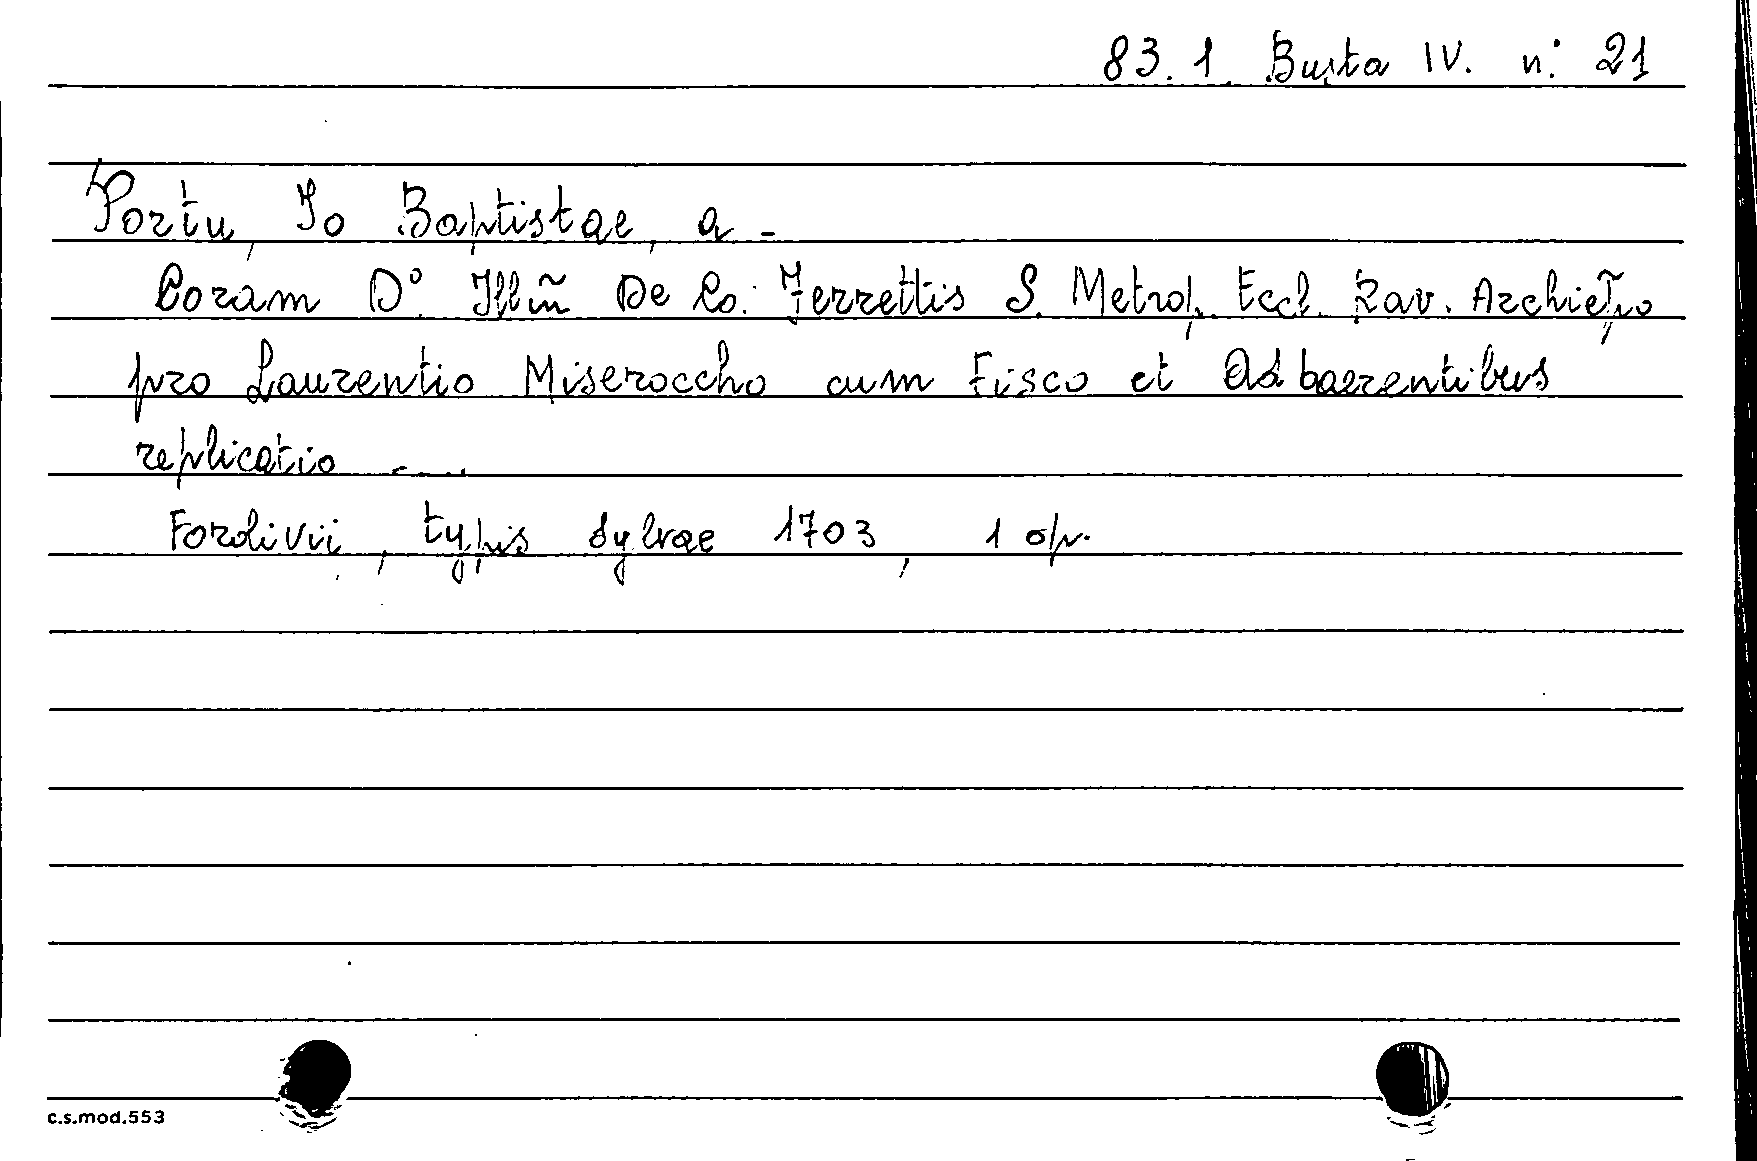 83.1. Busta IV. n: 21
Portu, Jo Baptistae, a -
Coram D°. Illm̃ De Co. Ferrettis S. Metrop. Eccl. Rav. Archie͠po
pro Laurentio Miseroccho cum Fisco et Adhaerentibus
replicatio ....
Forolivii, typis Sylvae 1703, 1 op.
c.s.mod.553